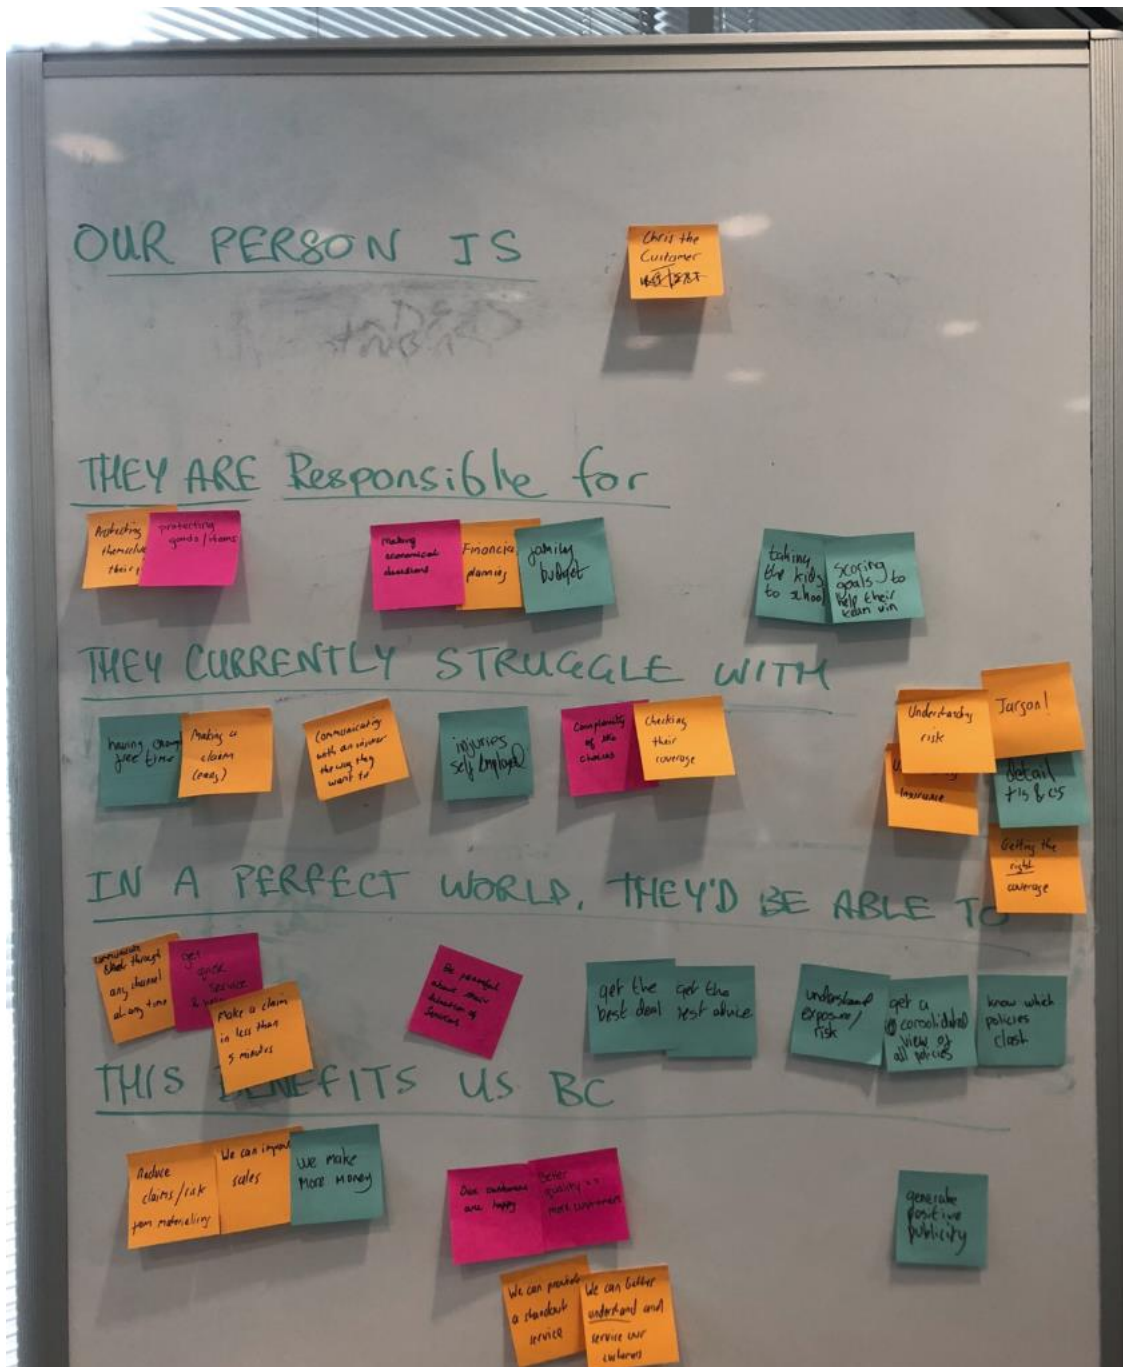 OUR PERSON IS
Chris the
Customer
THEY ARE Responsible for
Protecting
themselve
their
protecting
goods/items
Making
economical
decisions
Financial
planning
family
budget
taking
the kids
to school
scoring
goals to
help their
team win
THEY CURRENTLY STRUGGLE WITH
having enough
free time
Making a
claim
(easy)
Communicating
with an insurer
the way they
want to
injuries
self Employed
Complexity
of the
choices
Checking
their
coverage
Understanding
risk
Jargon!
Insurance
detail
t's & c's
Getting the
right
coverage
IN A PERFECT WORLD, THEY'D BE ABLE TO
communicate
through
any channel
at any time
get
quick
service
Make a claim
in less than
5 minutes
Be
about
of
Services
get the
best deal
get the
best advice
understand
exposure/
risk
get a
consolidated
view of
all policies
know which
policies
clash
THIS BENEFITS US BC
Reduce
claims/risk
from materialising
We can improve
sales
we make
More Money
Our customers
are happy
Better
quality =
more customers
generate
positive
publicity
We can provide
a standout
service
We can better
understand and
service our
customers